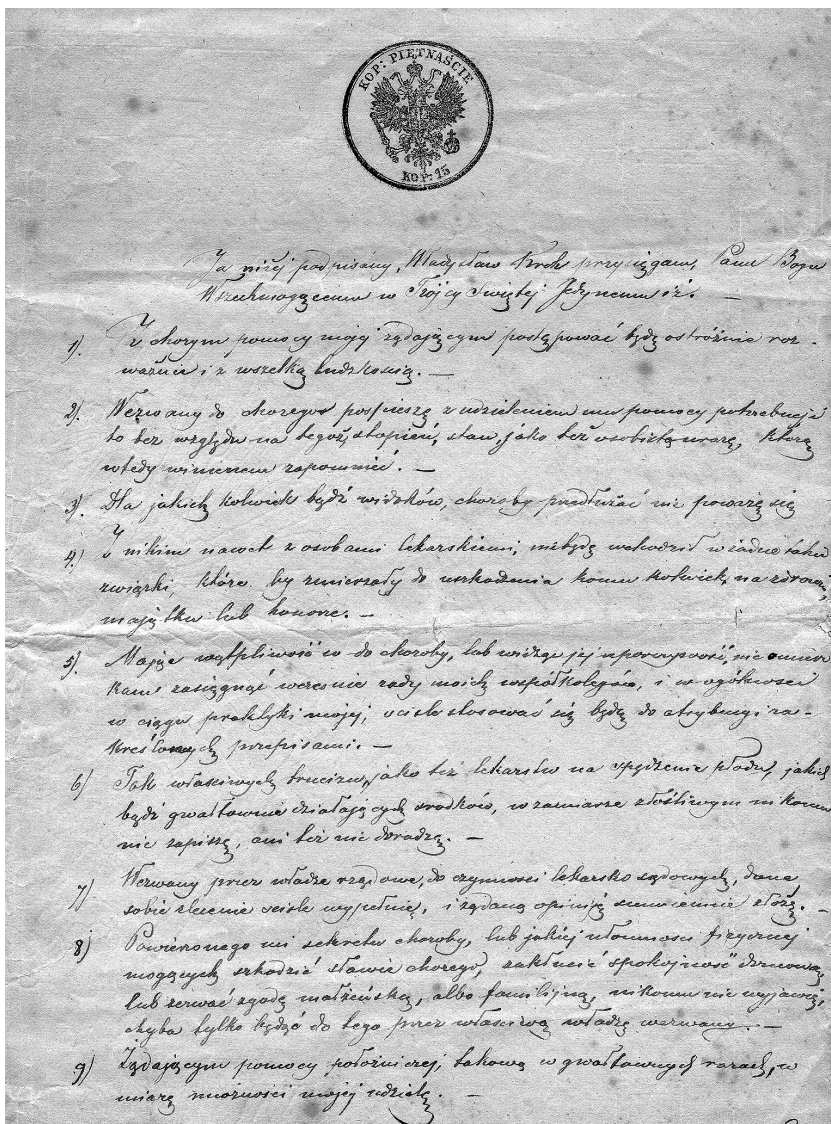 KOP: PIĘTNAŚCIE
KOP: 15
Ja niżej podpisany, Władysław Krok przysięgam, Panu Bogu
Wszechmogącemu w Trójcy Świętej Jedynemu iż. —
1). Z chorym pomocy mojej żądającym postępować będę ostróżnie roz-
ważnie i z wszelką ludzkością. —
2). Wezwany do chorego pospieszę z udzieleniem mu pomocy potrzebnej i
to bez względu na tegoż, stopień, stan, jako też osobistą urazę, którą
wtedy winienem zapomnieć. —
3). Dla jakich kolwiek bądź widoków, choroby przedłużać nie poważę się
4.) Z nikim nawet z osobami lekarskiemi, niebędę wchodził w żadne takie
związki, które by zmierzały do uszkodzenia komu kolwiek, na zdrowiu,
majątku lub honorze. —
5). Mając wątpliwość co do choroby, lub widząc jej uporczywość, nie omiesz
kam zasięgnąć wcześnie rady moich współkolegów, i w ogólności
w ciągu praktyki mojej, ściśle stosować się będę do atrybucyi za-
kreślonych przepisami. —
6) Tak właściwych trucizn, jako też lekarstw na spędzenie płodu, jakich
bądź gwałtownie działających srodków, w zamiarze złośliwym nikomu
nie zapiszę, ani też nie doradzę. —
7) Wezwany przez władze rządowe, do czynności lekarsko sądowych, dane
sobie zlecenie ściśle wypełnię, i żądaną opiniję sumiennie złożę. —
8) Powierzonego mi sekretu choroby, lub jakiej ułomności fizycznej
mogących szkodzić sławie chorego, zakłucić spokojność domową,
lub zerwać zgodę małżeńską, albo familijną, nikomu nie wyjawię,
chyba tylko będąc do tego przez właściwą władzę wezwany. —
9) Żądającym pomocy położniczej, takową w gwałtownych razach, w
miarę możności mojej udzielę. —